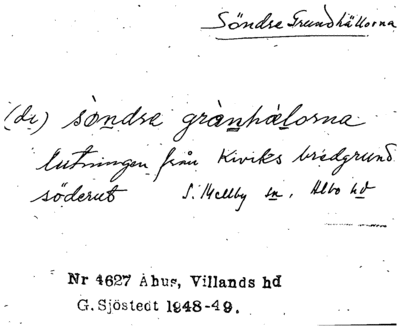 Söndre Grundhällorna
(di) sòndra grànhælorna
lutningen från Kiviks bredgrund
söderut S. Mellby sn, Albo hd
Nr 4627 Åhus, Villands hd
G. Sjöstedt 1948-49.